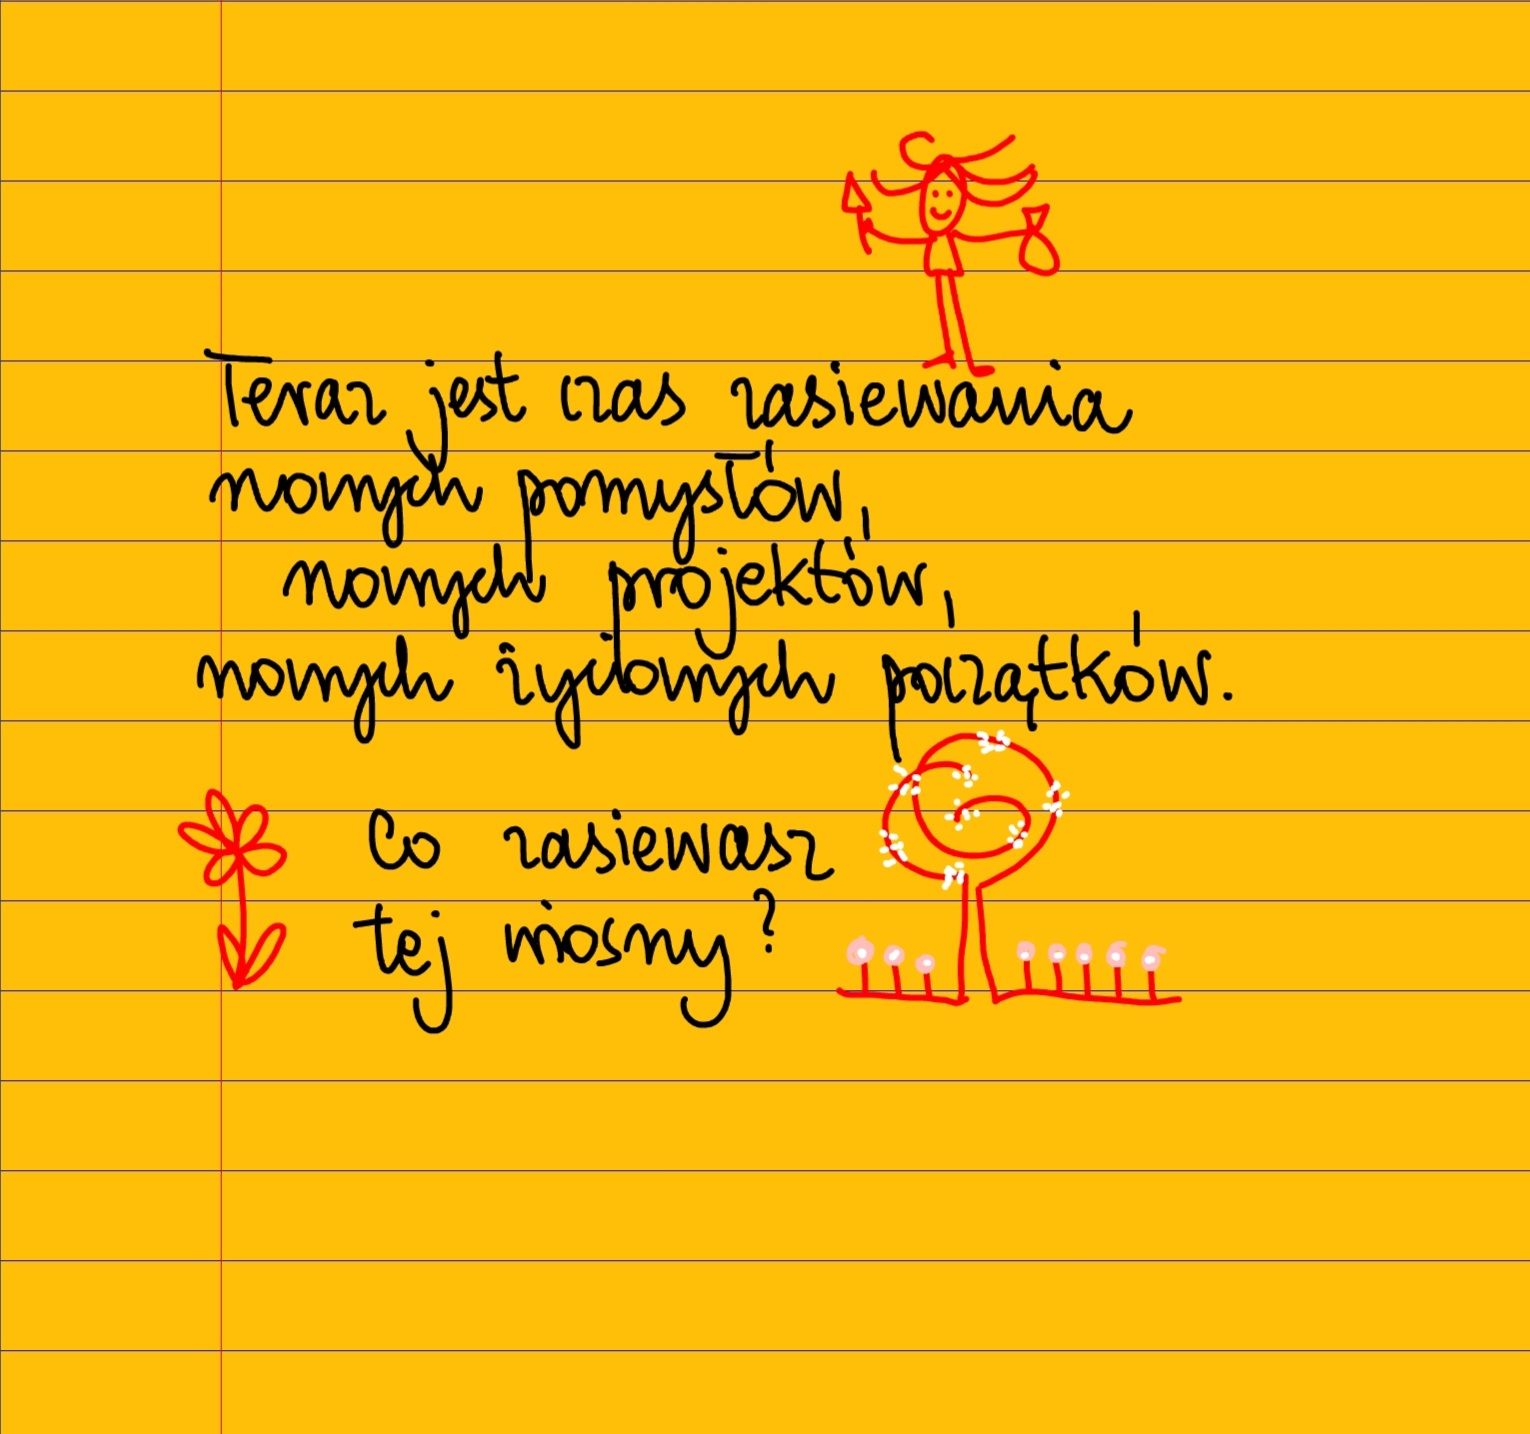 Teraz jest czas zasiewania
nowych pomysłów,
nowych projektów,
nowych życiowych początków.
Co zasiewasz
tej wiosny?